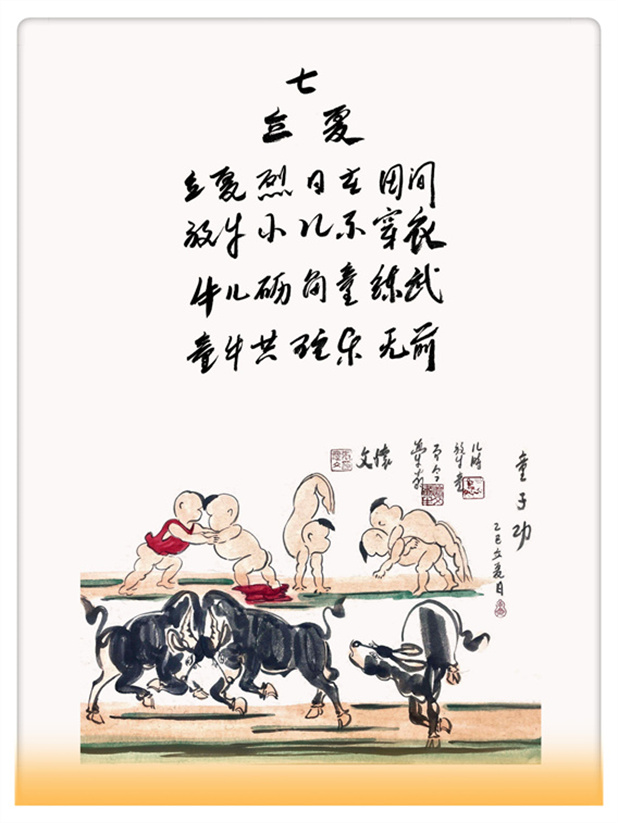 七
立夏
立夏烈日在田间
放牛小儿不穿衣
牛儿砺角童练武
童牛共玩乐无前
童子功
乙巳立夏日
儿时
放牛
怀文